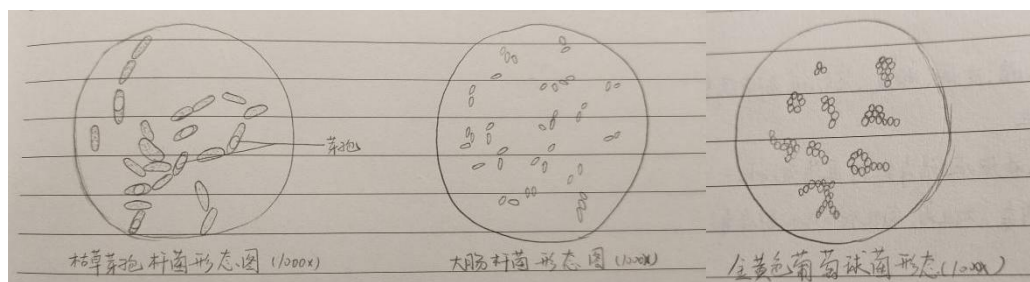 芽孢
枯草芽孢杆菌形态图(1000x)
大肠杆菌形态图(1000x)
金黄色葡萄球菌形态(1000x)